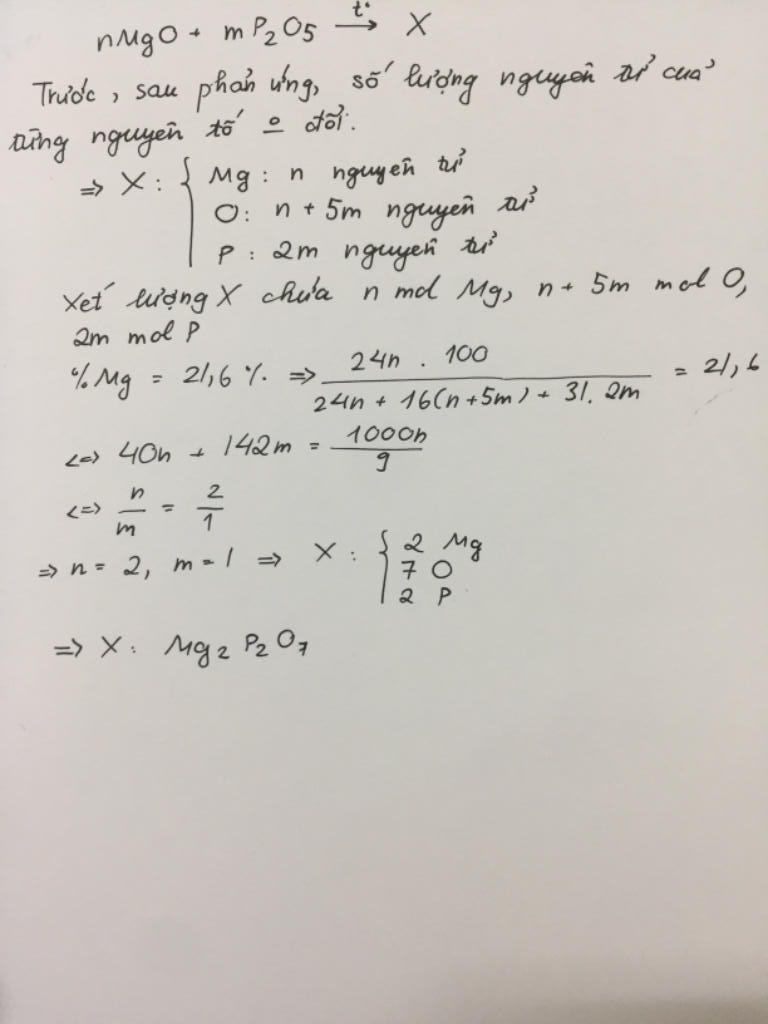 nMgO + mP₂O₅ →(t°) X
Trước, sau phản ứng, số lượng nguyên tử của
từng nguyên tố o đổi.
⇒ X: { Mg: n nguyên tử
O: n + 5m nguyên tử
P: 2m nguyên tử
Xét lượng X chứa n mol Mg, n + 5m mol O,
2m mol P
% Mg = 21,6 % ⇒ (24n . 100) / (24n + 16(n+5m) + 31.2m) = 21,6
<=> 40n + 142m = 1000n / 9
<=> n/m = 2/1
⇒ n = 2, m = 1 ⇒ X: { 2 Mg
7 O
2 P
⇒ X: Mg₂P₂O₇